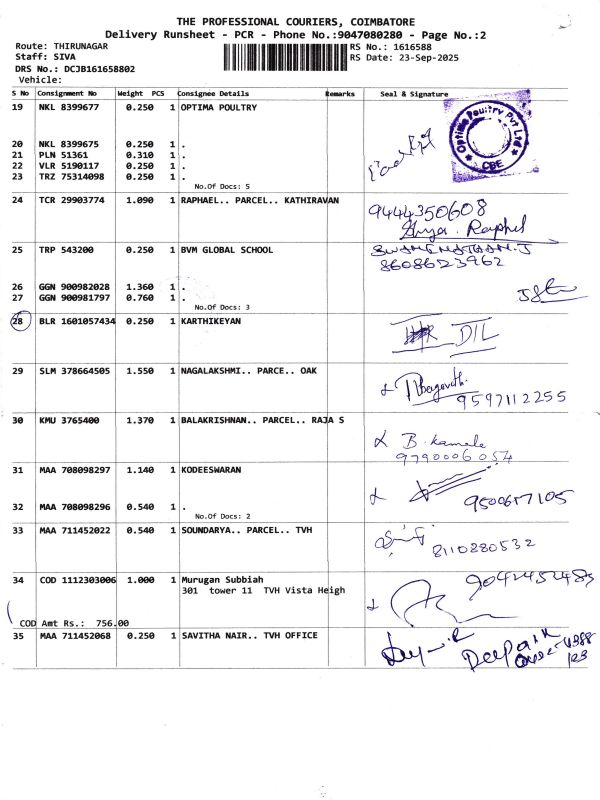 THE PROFESSIONAL COURIERS, COIMBATORE
Delivery Runsheet - PCR - Phone No.:9047080280 - Page No.:2
Route: THIRUNAGAR RS No.: 1616588
Staff: SIVA RS Date: 23-Sep-2025
DRS No.: DCJB161658802
Vehicle:
S No Consignment No Weight PCS Consignee Details Remarks Seal & Signature
19 NKL 8399677 0.250 1 OPTIMA POULTRY
Optima Poultry Pvt Ltd
CBE
20 NKL 8399675 0.250 1 .
21 PLN 51361 0.310 1 .
22 VLR 5190117 0.250 1 .
23 TRZ 75314098 0.250 1 .
No.Of Docs: 5
24 TCR 29903774 1.090 1 RAPHAEL.. PARCEL.. KATHIRAVAN
9444350608
Raphel
25 TRP 543200 0.250 1 BVM GLOBAL SCHOOL
SWAMINATHAN.J
8608623962
26 GGN 900982028 1.360 1 .
27 GGN 900981797 0.760 1 .
No.Of Docs: 3
28 BLR 1601057434 0.250 1 KARTHIKEYAN
DIL
29 SLM 378664505 1.550 1 NAGALAKSHMI.. PARCE.. OAK
9597112255
30 KMU 3765400 1.370 1 BALAKRISHNAN.. PARCEL.. RAJA S
B. Kamala
9790006054
31 MAA 708098297 1.140 1 KODEESWARAN
32 MAA 708098296 0.540 1 .
No.Of Docs: 2
33 MAA 711452022 0.540 1 SOUNDARYA.. PARCEL.. TVH
8110880532
34 COD 1112303006 1.000 1 Murugan Subbiah
301 tower 11 TVH Vista Heigh
COD Amt Rs.: 756.00
35 MAA 711452068 0.250 1 SAVITHA NAIR.. TVH OFFICE